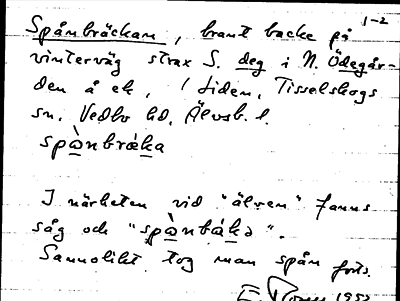 1-2
Spånbräckan, brant backe på
vinterväg strax S. deg i N. Ödegår-
den å ek, i Liden, Tisselskogs
sn, Vedbo hd, Älvsb. l.
spànbræka
I närheten vid "älven" fanns
såg och "spànbákə".
Sannolikt tog man spån forts.
1952